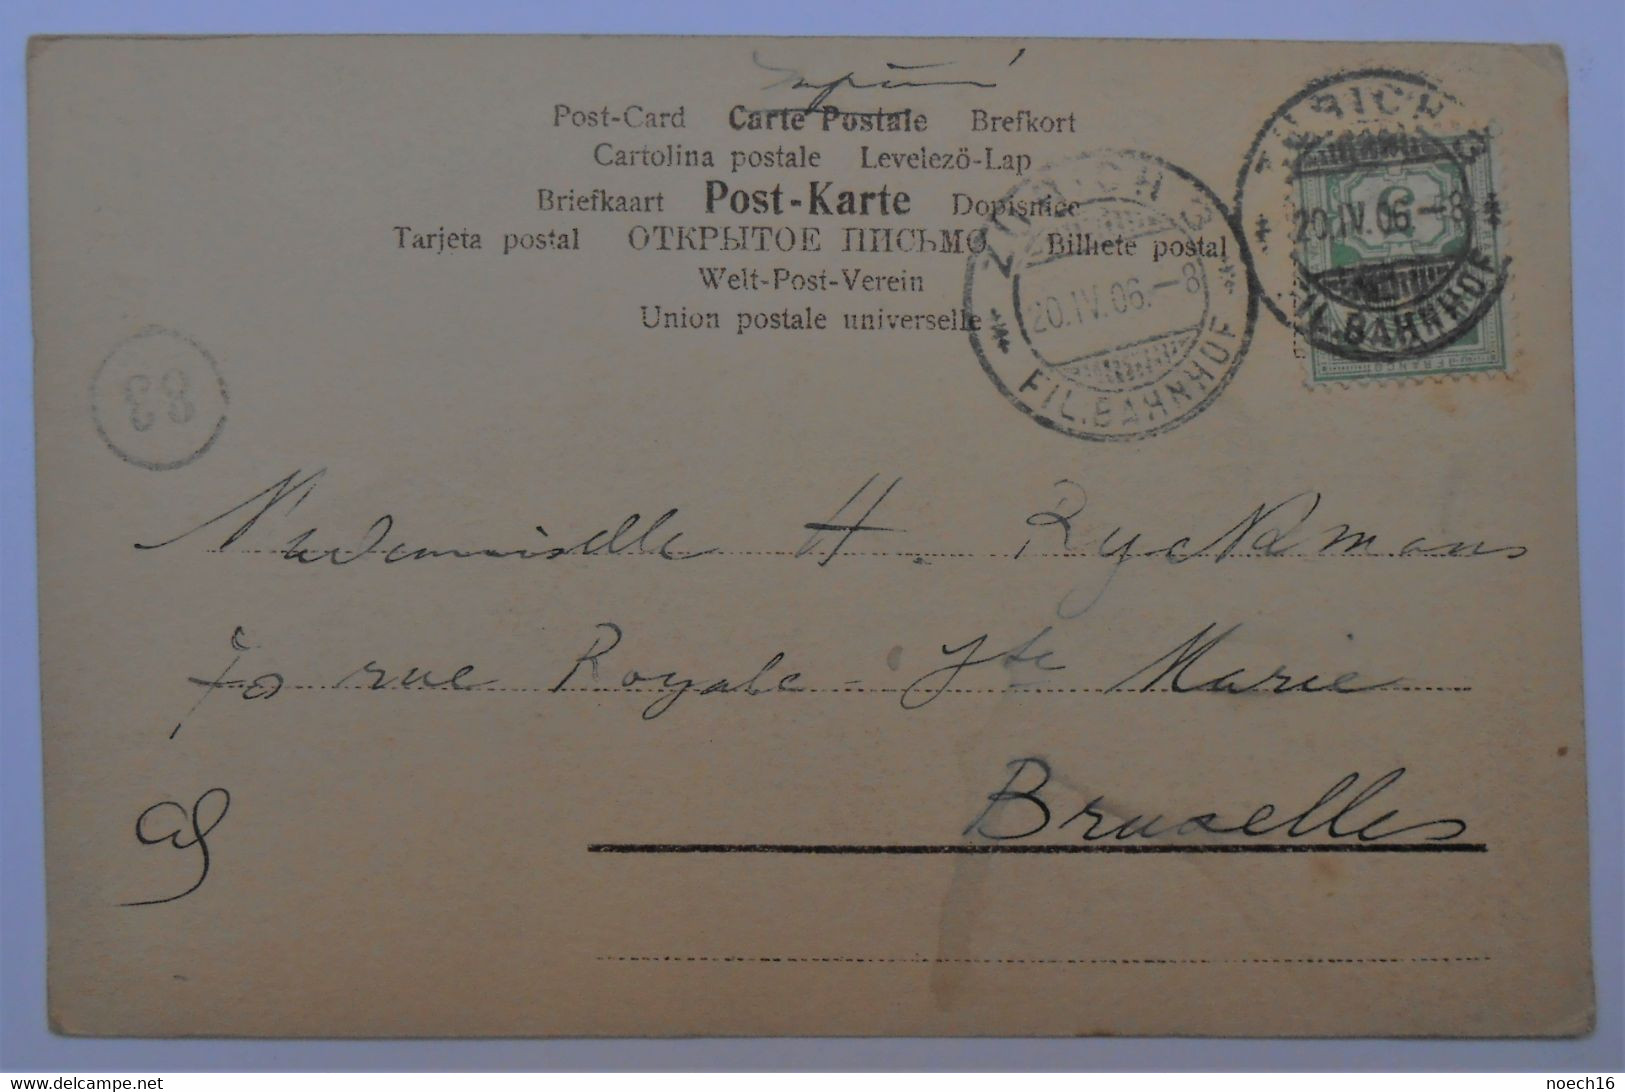 Imprimé
Post-Card Carte Postale Brefkort
Cartolina postale Levelezö-Lap
Briefkaart Post-Karte Dopisnice
Tarjeta postal ОТКРЫТОЕ ПИСЬМО Bilhete postal
Welt-Post-Verein
Union postale universelle
ZÜRICH
20.IV.06.–8
FIL.BAHNHOF
ZÜRICH
20.IV.06.–8
FIL.BAHNHOF
5
FRANCO
83
Mademoiselle H. Ryckmans
70 rue Royale - Ste Marie
Bruxelles
delcampe.net
noech16